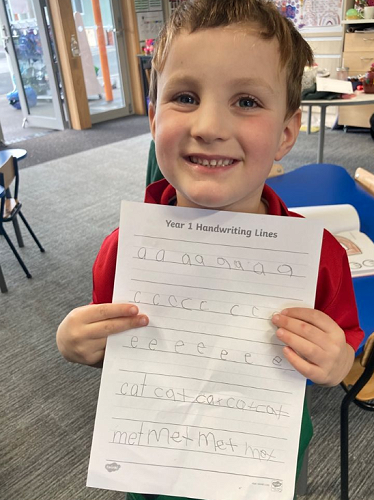 Year 1 Handwriting Lines
a a a a a a a a
c c c c c c c c
e e e e e e e e
cat cat cat cat cat
met met met met